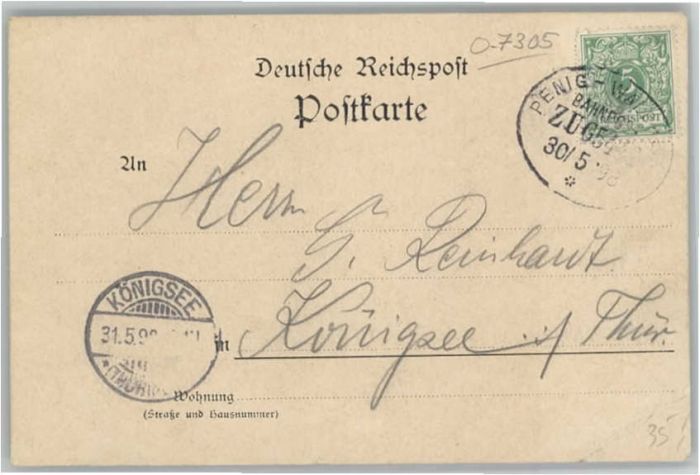 0-7305
Deutsche Reichspost
Postkarte
5
REICHSPOST
PENIG-
BAHNPOST
ZUG
30/5 98
An
Herrn
G. Reinhardt
KÖNIGSEE
31.5.98
in Königsee i/Thür.
Wohnung
(Straße und Hausnummer)
35